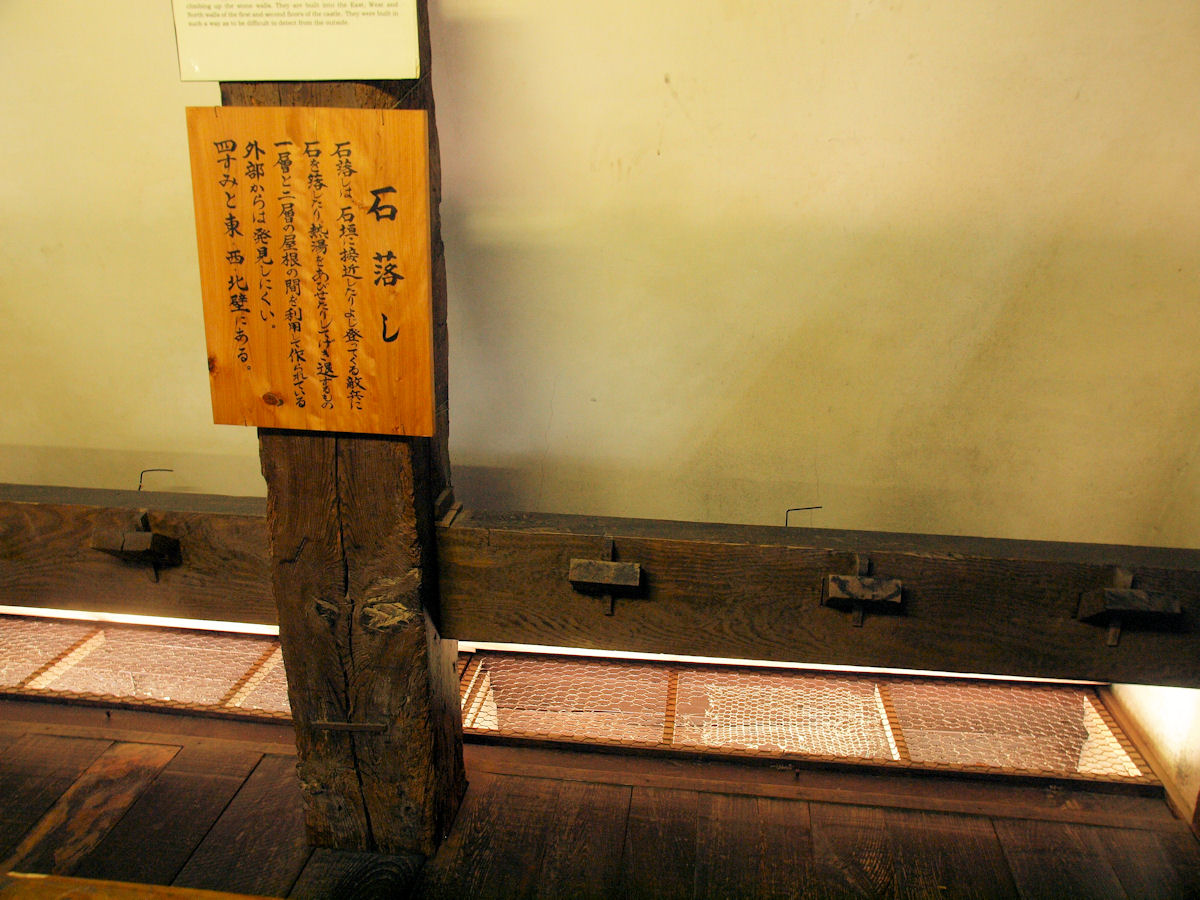 climbing up the stone walls. They are built into the East, West and
North walls of the first and second floors of the castle. They were built in
such a way as to be difficult to detect from the outside.
石落し
石落しは、石垣に接近したりよじ登ってくる敵兵に
石を落したり、熱湯をあびせたりしてげき退するもの
一層と二層の屋根の間を利用して作られている
外部からは発見しにくい。
四すみと東・西・北壁にある。